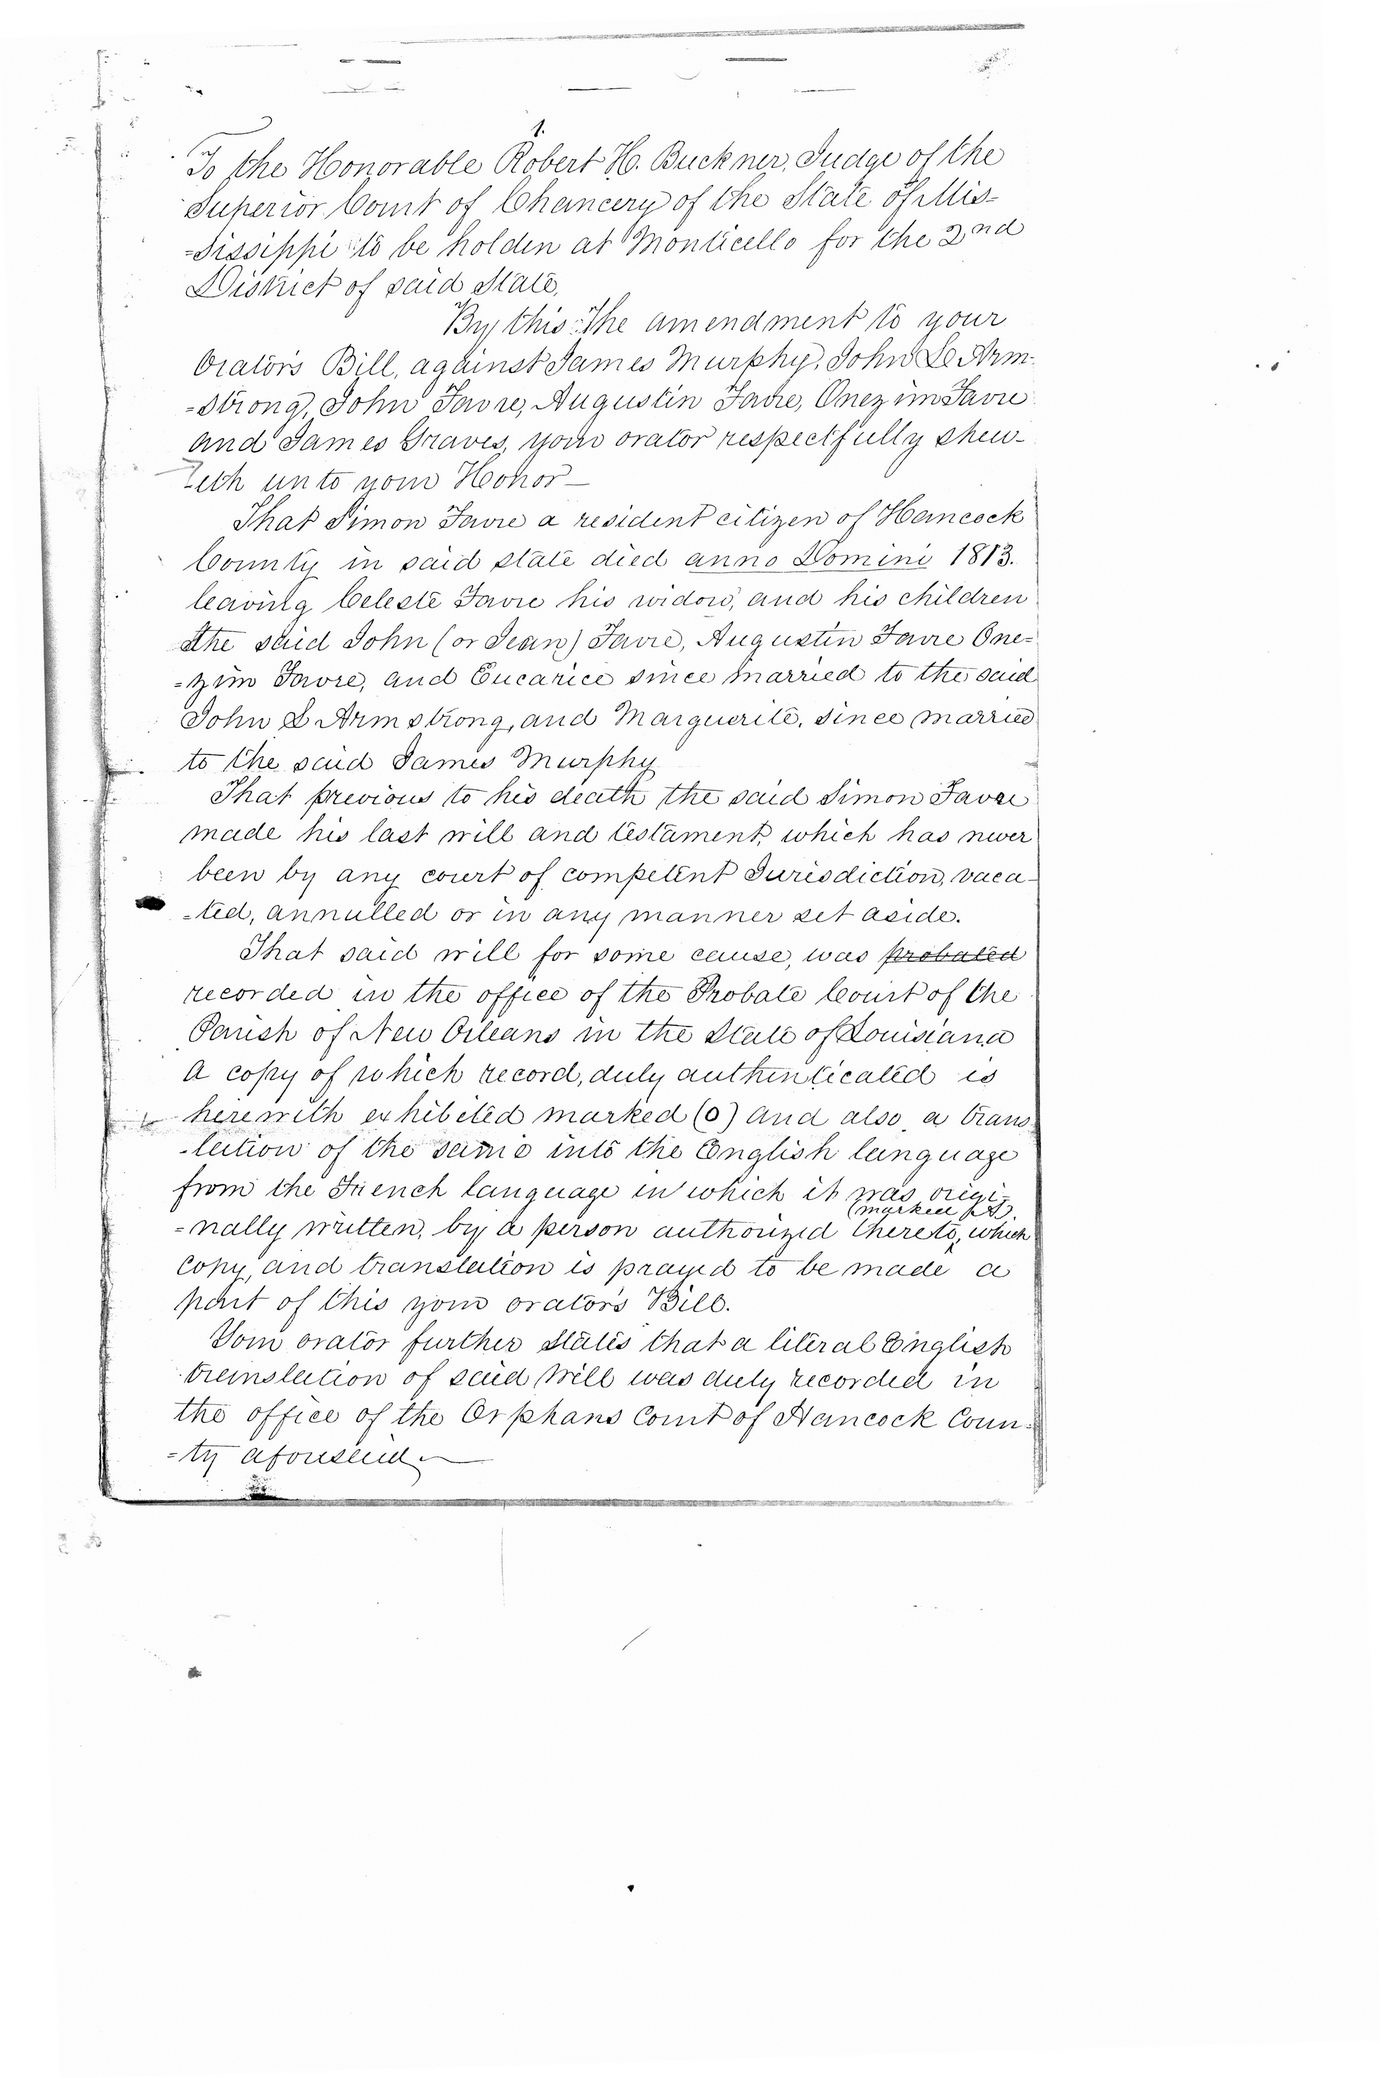 1.
To the Honorable Robert H. Buckner, Judge of the
Superior Court of Chancery of the State of Mis-
=sissippi to be holden at Monticello for the 2nd
District of said State,
By this the amendment to your
Orator's Bill, against James Murphy, John L Arm-
=strong, John Favre, Augustin Favre, Onezim Favre
and James Graves, your orator respectfully shew-
=eth unto your Honor—
That Simon Favre a resident citizen of Hancock
County in said state died anno Domini 1813.
leaving Celeste Favre his widow, and his children
the said John (or Jean) Favre, Augustin Favre One=
=zim Favre, and Eucarice since married to the said
John L Armstrong, and Marguerite, since married
to the said James Murphy
That previous to his death the said Simon Favre
made his last will and testament, which has never
been by any court of competent Jurisdiction, vaca-
=ted, annulled or in any manner set aside.
That said will for some cause, was probated
recorded in the office of the Probate Court of the
Parish of New Orleans in the State of Louisiana
a copy of which record, duly authenticated is
herewith exhibited marked (O) and also a trans
-lation of the same into the English language
from the French language in which it was origi=
(marked
=nally written, by a person authorized thereto, which
copy, and translation is prayed to be made a
part of this your orator's Bill.
Your orator further states that a literal English
translation of said Will was duly recorded in
the office of the Orphans Court of Hancock Coun=
=ty aforesaid.—